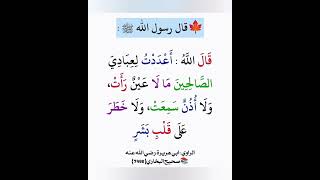 🍁قال رسول الله ﷺ :
قَالَ اللَّهُ : أَعْدَدْتُ لِعِبَادِيَ
الصَّالِحِينَ مَا لَا عَيْنٌ رَأَتْ،
وَلَا أُذُنٌ سَمِعَتْ، وَلَا خَطَرَ
عَلَى قَلْبِ بَشَرٍ
الراوي: ابي هريرة رضي الله عنه
📚صحيح البخاري {7498}